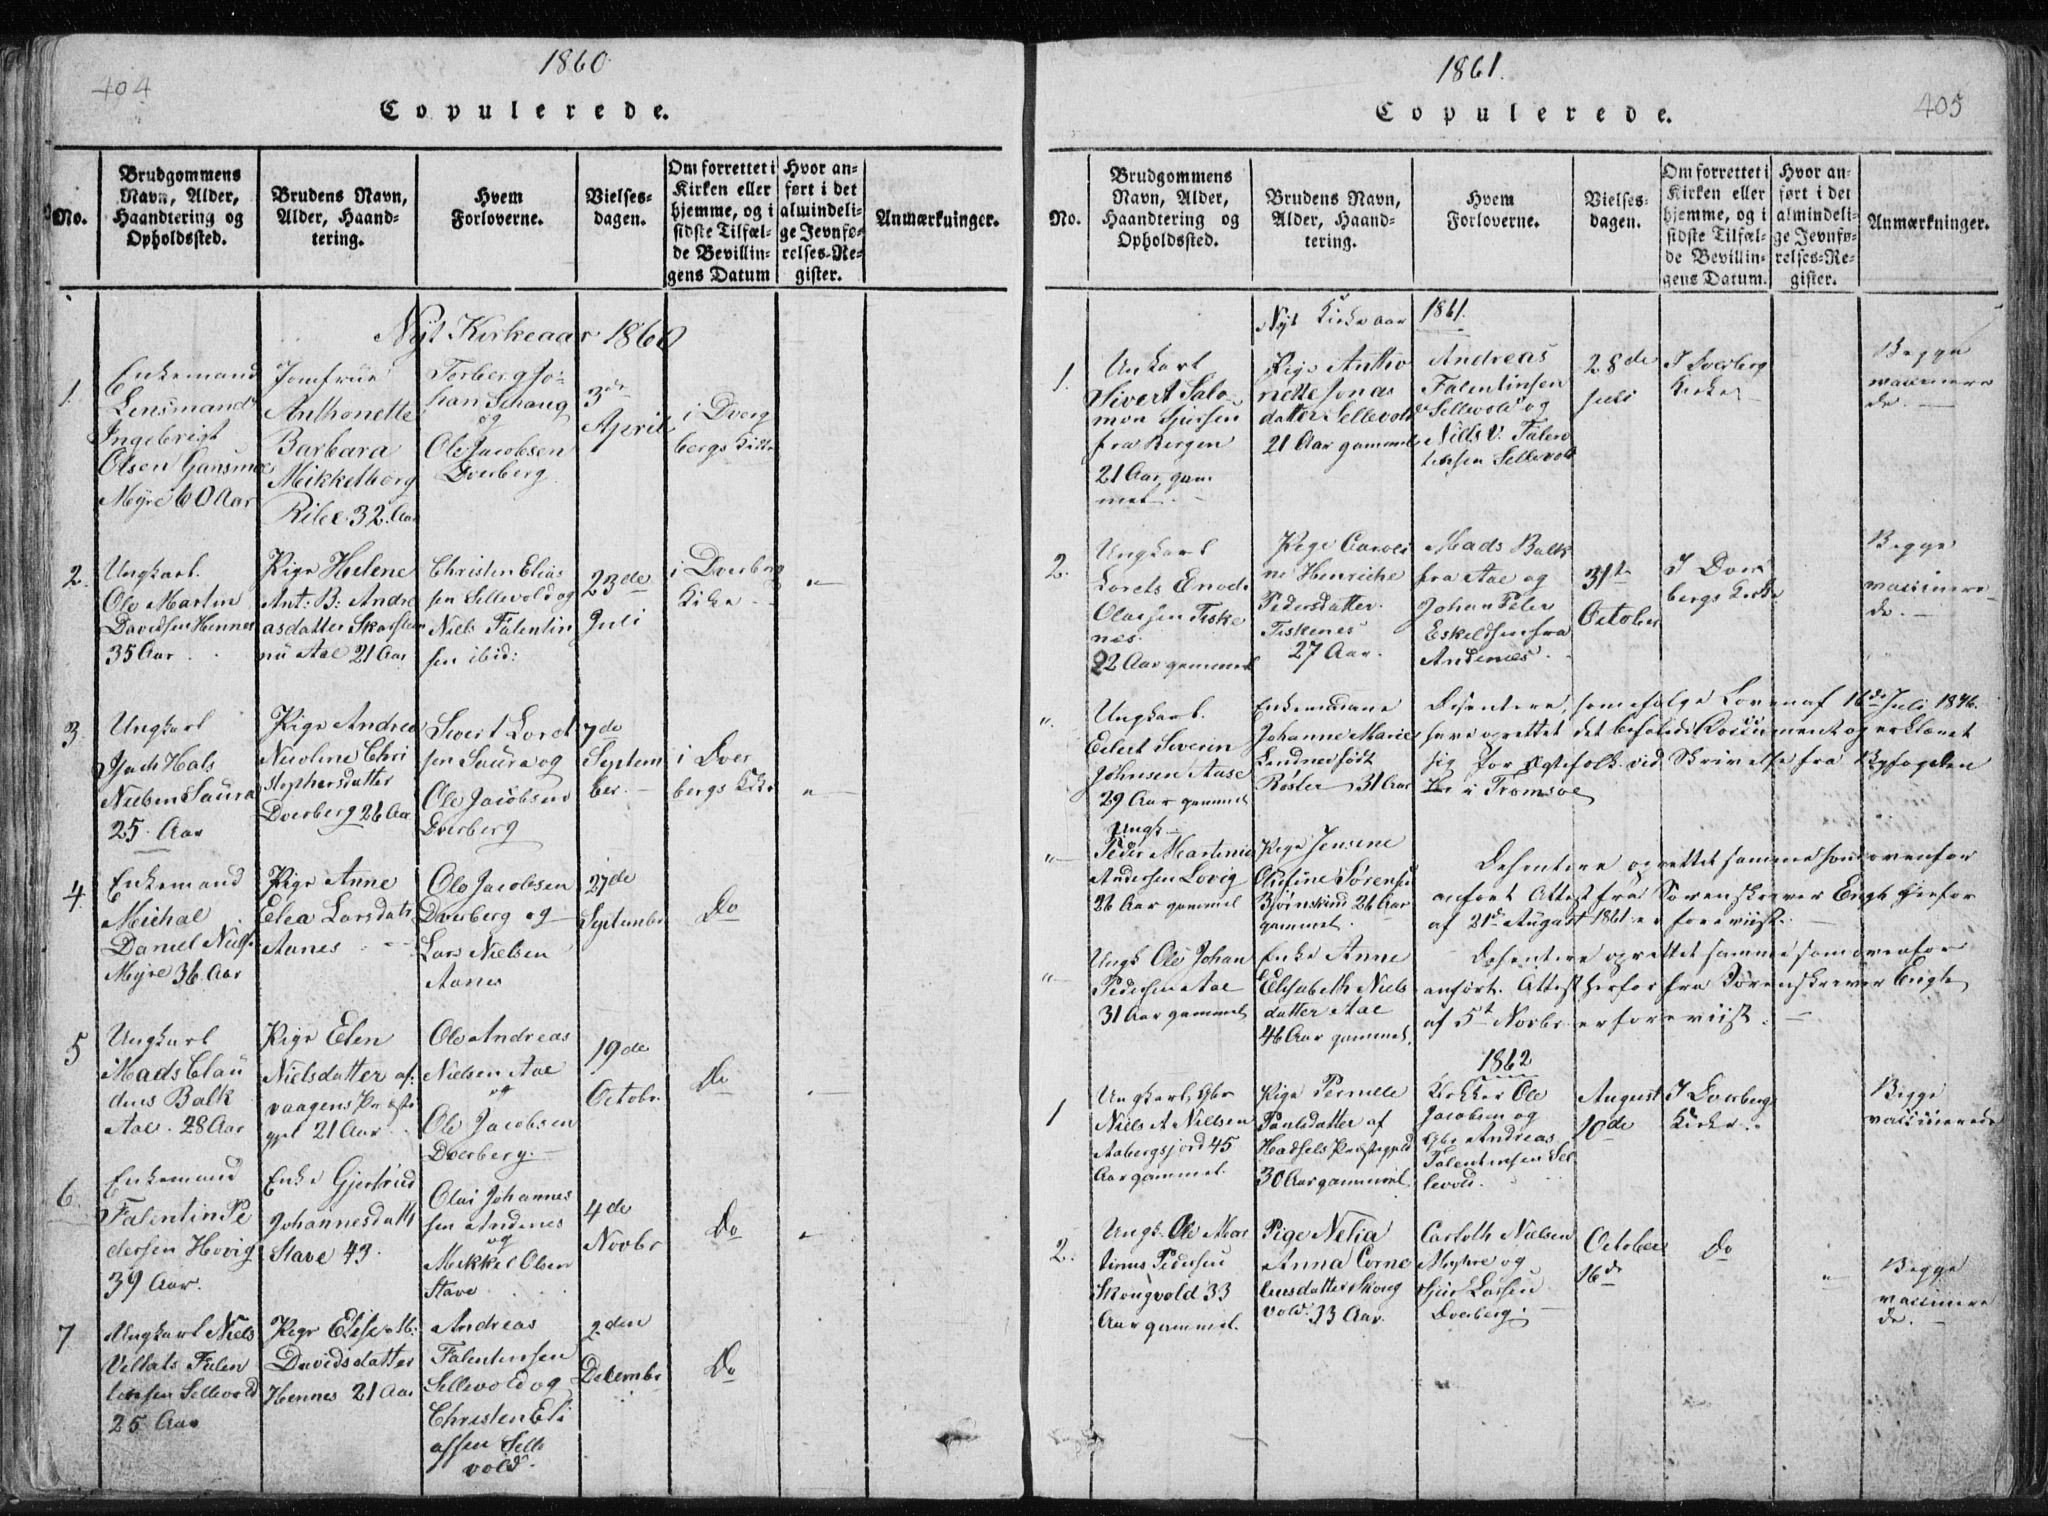 404
1860
Copulerede.
No.
Brudgommens Navn, Alder, Haandtering og Opholdssted.
Brudens Navn, Alder, Haandtering.
Hvem Forloverne.
Vielsesdagen.
Om forrettet i Kirken eller hjemme, og i sidste Tilfælde Bevillingens Datum
Hvor anført i det almindelige Jevnførelses-Register.
Anmærkninger.
Nyt Kirkeaar 1860
1.
Enkemand
Lensmand
Ingebrigt
Olsen
Myre 60 Aar
Jomfrue
Anthonette
Barbara
Mikkelborg
Ribe 32 Aar
Torberg Jo-
han Schaug
og
Ole Jacobsen
Dverberg
3de
April
i Dverg
bergs Kirke
2.
Ungkarl
Ole Martin
Davidsen Hennes
35 Aar
Pige Helene
Ant: B: Andre
asdatter
Aae 21 Aar
Christen Elias
sen Sellevold og
Niels Falentin
sen ibid:
23de
Juli
i Dverberg
Kirke
"
3.
Ungkarl
Isach Hals
Nielsen Saura
25 Aar
Pige Andrea
Nicoline Chri
stophersdatter
Dverberg 26 Aar
Sivert Lorst
sen Saura og
Ole Jacobsen
Dverberg
7de
Septem
ber.
i Dver
bergs Kirke
"
4.
Enkemand
Michal
Daniel Niels.
Myre 36 Aar
Pige Anne
Elea Larsdatr
Aanes
Ole Jacobsen
Dverberg og
Lars Nielsen
Aanes
27de
Septembr
Do
5
Ungkarl
Mads Clau
dius Balk
Aae. 28 Aar
Pige Elen
Nielsdatter af
vaagens Præste
gjel 21 Aar
Ole Andreas
Nielsen Aae
og
Ole Jacobsen
Dverberg.
19de
Octobr.
Do
"
6
Enkemand
Falentin Pe
dersen Hovig
39 Aar.
Enke Gjertrud
Johannesdatt
Stave 43.
Olai Johannes
sen Andenes
og
Mikkel Olsen
Stave
4de
Novbr
Do
"
7
Ungkarl Niels
Vellats Falen
tinsen Sellevold
25 Aar
Pige Elise M:
Davidsdatter
Hennes 21 Aar
Andreas
Falentinsen
Sellevold og
Christen Eli
assen Selle
vold.
2den
Decembr
Do
1861.
405
Copulerede.
No.
Brudgommens Navn, Alder, Haandtering og Opholdssted.
Brudens Navn, Alder, Haandtering.
Hvem Forloverne.
Vielsesdagen.
Om forrettet i Kirken eller hjemme, og i sidste Tilfælde Bevillingens Datum.
Hvor anført i det almindelige Jevnførelses-Register.
Anmærkninger.
Nyt Kirkeaar 1861.
1.
Unkarl
Sivert Salo
mon Sjursen
fra Bergen
21 Aar gam
mel.
Pige Antho
nette Jonas
datter Sellevold
21 Aar gammel
Andreas
Falentinsen
Sellevold og
Niels V. Falen
tinsen Sellevold
28de
Juli
I Dverberg
Kirke
Begge
vaccinere
de.
2.
Ungkarl
Lorets Enoch
Olaisen Fiske
nes.
22 Aar gammel
Pige Caroli
ne Henriche
Pedersdatter.
Fiskenes
27 Aar.
Mads Balk
fra Aae og
Johan Peter
Eskeldsen fra
Andenes
31te
October
I Dver
bergs Kirke
Begge
vaccinere
de.
"
Ungkarl.
Edert Severin
Johnsen Aase
29 Aar gammel
Enkemadame
Johanne Marie
Lendner født
Røster 31 Aar
Disentere, som efølge Loven af 16de Juli 1846.
have oprettet det befalede Document og erklæret
sig for Ægtefolk vid. Skrivelse fra Byfogden
i Tromsøe
"
Ungk
Peder Martinius
Andersen Lovig
26 Aar gammel
Pige Jensine
Olufine Sørensd
Bjørnskind 26 Aar
gammel.
Desentere oprettet samme som ovenfor
anført Attest fra Sorenskriver Engh herfor
af 21de August 1861 er foreviist.
"
Ungk Ole Johan
Pedersen Aae
31 Aar gammel
Enke Anne
Elisabeth Niels
datter Aae
46 Aar gammel.
Desentere oprettet samme som ovenfor
anført. Attest herfor fra Sorenskriver Engh
af 5te Novbr er foreviist.
1862
1
Ungkarl, Gbr
Niels A Nielsen
Aabergsjord 45
Aar gammel.
Pige Pernille
Paulsdatter af
Hadsels Præstegjeld
30 Aar gammel.
Kirkker Ole
Jacobsen og
Gbr Andreas
Falentinsen Sel
levold.
August
10de
I Dverberg
Kirke
Begge
vaccinerede
2.
Ungk. Ole Mar
tinus Pedersen
Skougvold 33
Aar gammel.
Pige Nelia
Anna Corne
liusdatter Skoug
vold. 33 Aar.
Nielsen
Myhre og
Sjur Larsen
Dverberg.
October
16de
Do
"
Begge
vaccinere
de.